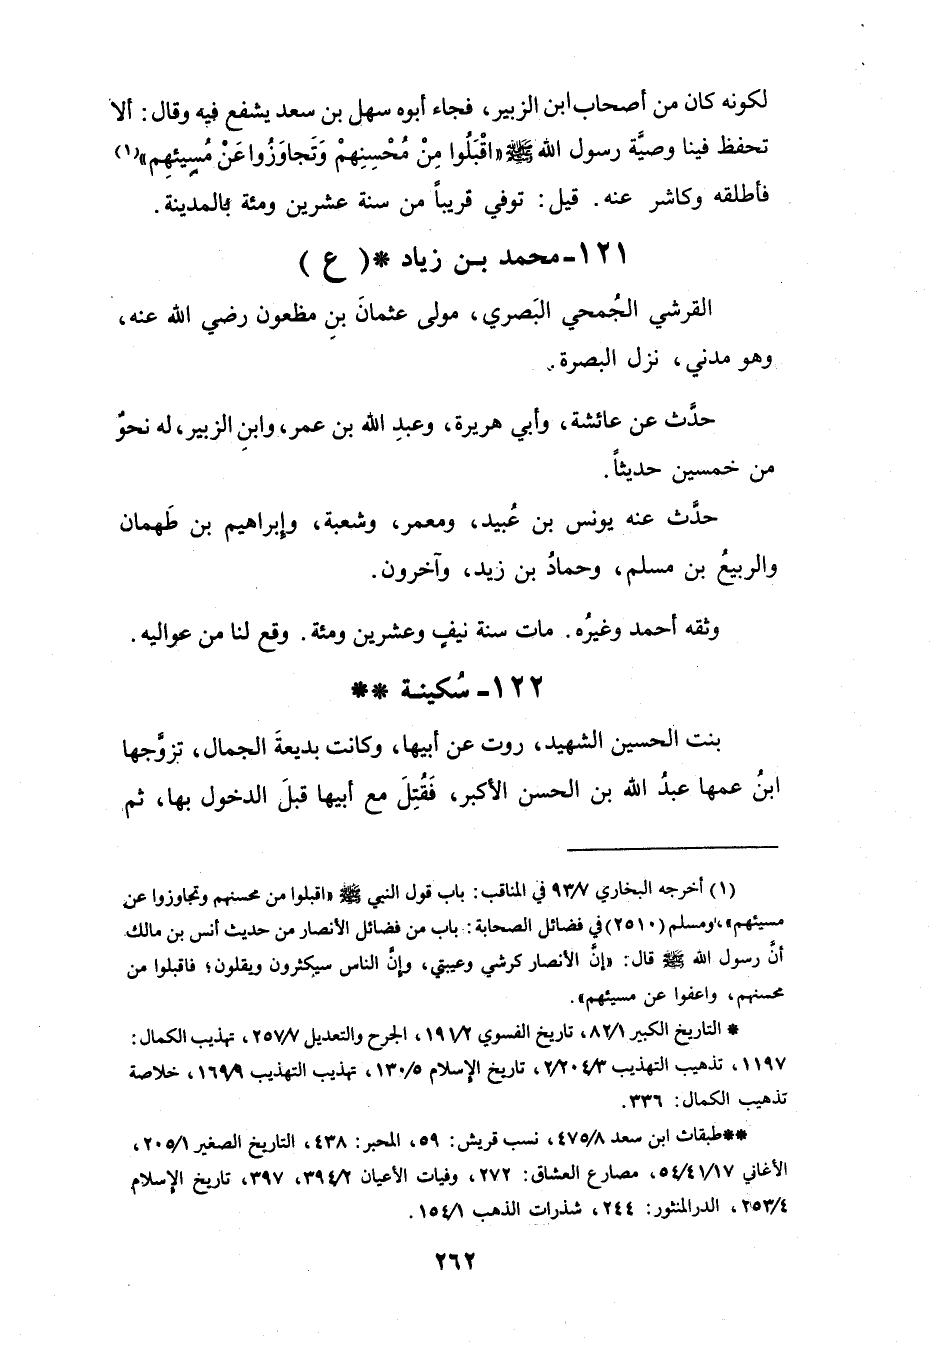 لكونه كان من أصحاب ابن الزبير، فجاء أبوه سهل بن سعد يشفع فيه وقال: ألا
تحفظ فينا وصيَّة رسول الله ﷺ «اقْبَلُوا مِنْ مُحْسِنِهِمْ وَتَجاوَزُوا عَنْ مُسِيئهِم»(١)
فأطلقه وكاشر عنه. قيل: توفي قريباً من سنة عشرين ومئة بالمدينة.
١٢١- محمد بن زياد * ( ع )
القرشي الجُمحي البَصري، مولى عثمانَ بنِ مظعون رضي الله عنه،
وهو مدني، نزل البصرة.
حدَّث عن عائشة، وأبي هريرة، وعبدِ الله بن عمر، وابنِ الزبير، له نحوٌ
من خمسين حديثاً.
حدَّث عنه يونس بن عُبيد، ومعمر، وشعبة، وإبراهيم بن طَهمان
والربيعُ بن مسلم، وحمادُ بن زيد، وآخرون.
وثقه أحمد وغيرُه. مات سنة نيفٍ وعشرين ومئة. وقع لنا من عواليه.
١٢٢- سُكينة **
بنت الحسين الشهيد، روت عن أبيها، وكانت بديعةَ الجمال، تزوَّجها
ابنُ عمها عبدُ الله بن الحسن الأكبر، فَقُتِلَ مع أبيها قبلَ الدخول بها، ثم
(١) أخرجه البخاري ٩٣/٧ في المناقب: باب قول النبي ﷺ «اقبلوا من محسنهم وتجاوزوا عن
مسيئهم»، ومسلم (٢٥١٠) في فضائل الصحابة: باب من فضائل الأنصار من حديث أنس بن مالك
أنَّ رسول الله ﷺ قال: «إنَّ الأنصار كرشي وعيبتي، وإنَّ الناس سيكثرون ويقلون؛ فاقبلوا من
محسنهم، واعفوا عن مسيئهم».
* التاريخ الكبير ٨٢/١، تاريخ الفسوي ١٩١/٢، الجرح والتعديل ٢٥٧/٧، تهذيب الكمال:
١١٩٧، تذهيب التهذيب ٢/٢٠٤/٣، تاريخ الإسلام ١٣٠/٥، تهذيب التهذيب ١٦٩/٩، خلاصة
تذهيب الكمال: ٣٣٦.
**طبقات ابن سعد ٤٧٥/٨، نسب قريش: ٥٩، المحبر: ٤٣٨، التاريخ الصغير ٢٠٥/١،
الأغاني ٥٤/٤١/١٧، مصارع العشاق: ٢٧٢، وفيات الأعيان ٣٩٤/٢، ٣٩٧، تاريخ الإسلام
٢٥٣/٤، الدر المنثور: ٢٤٤، شذرات الذهب ١٥٤/١.
٢٦٢